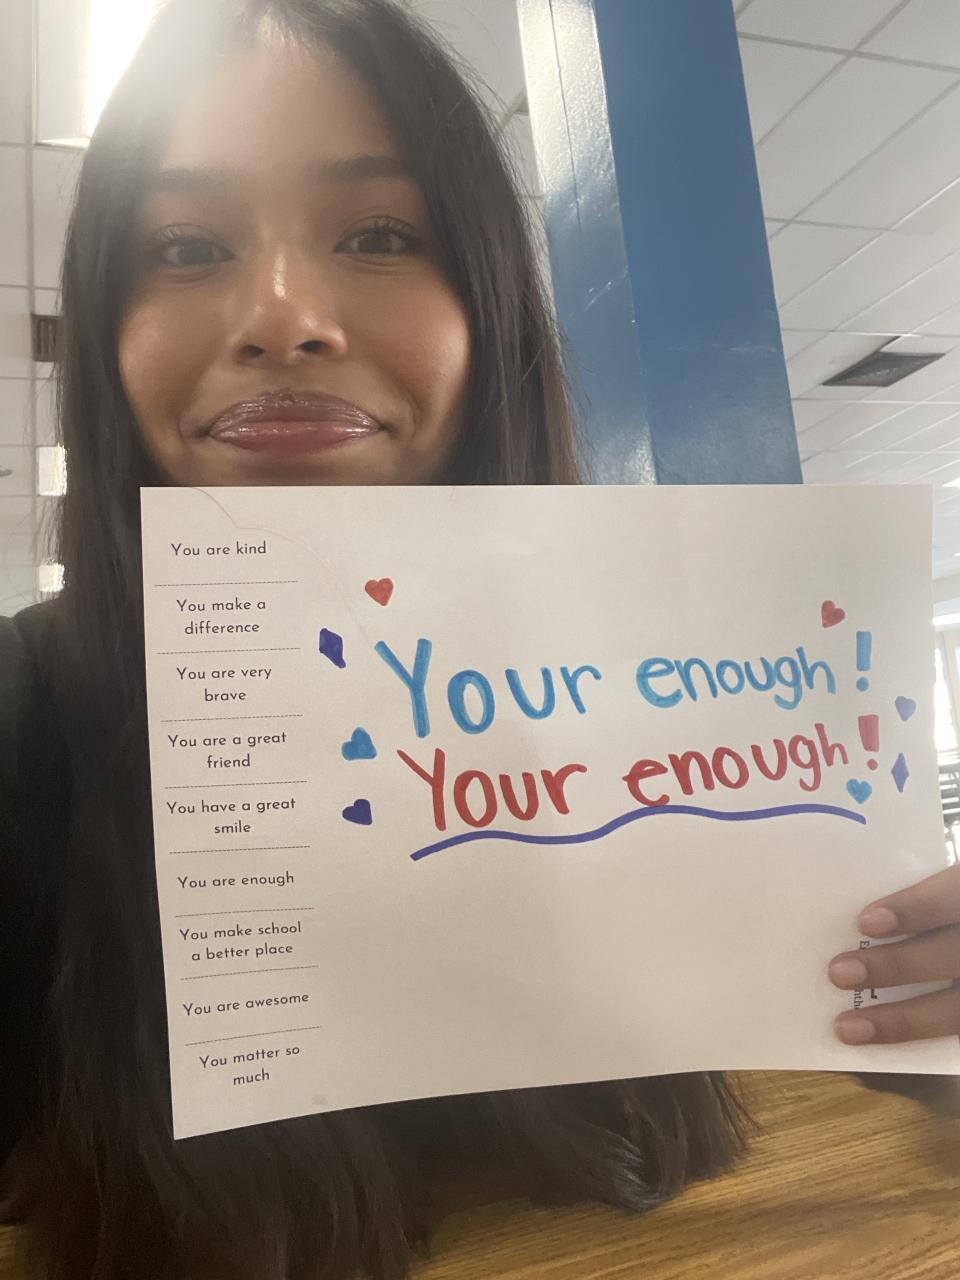 You are kind
You make a
difference
You are very
brave
You are a great
friend
You have a great
smile
You are enough
You make school
a better place
You are awesome
You matter so
much
Your enough!
Your enough!